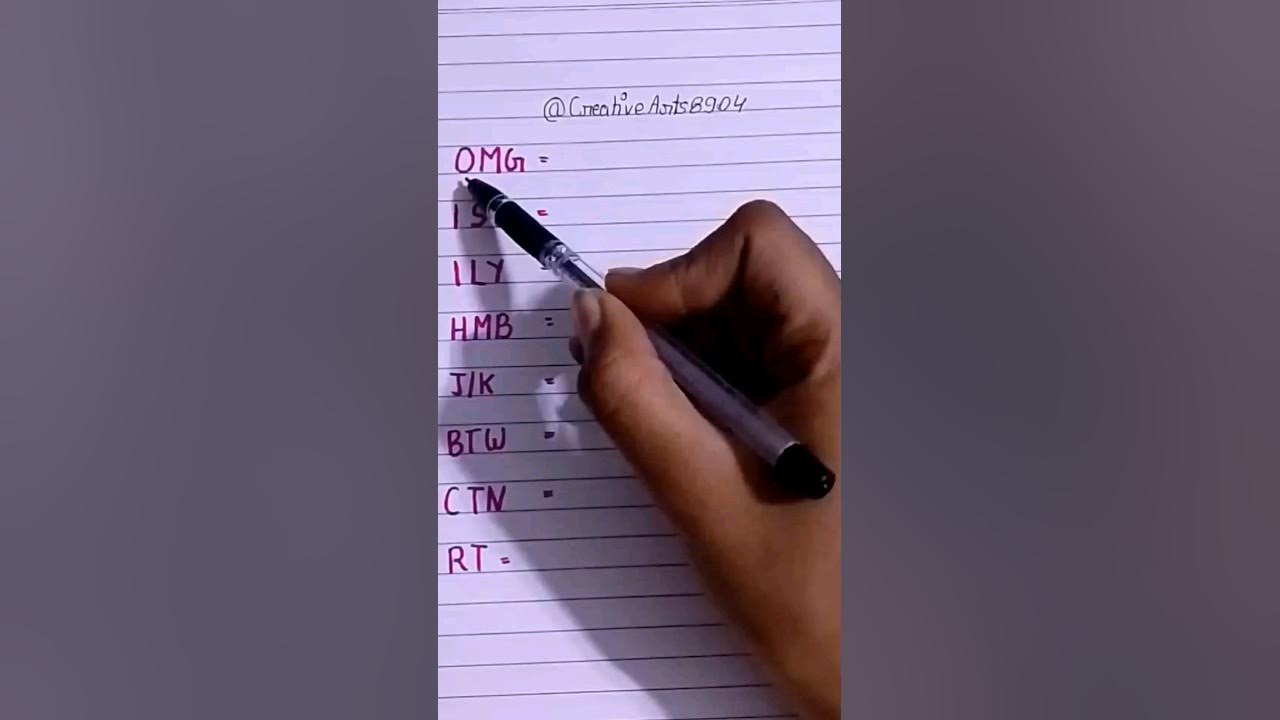 @CreativeArts8904
OMG =
IS =
ILY
HMB =
J/K =
BTW =
CTN =
RT =